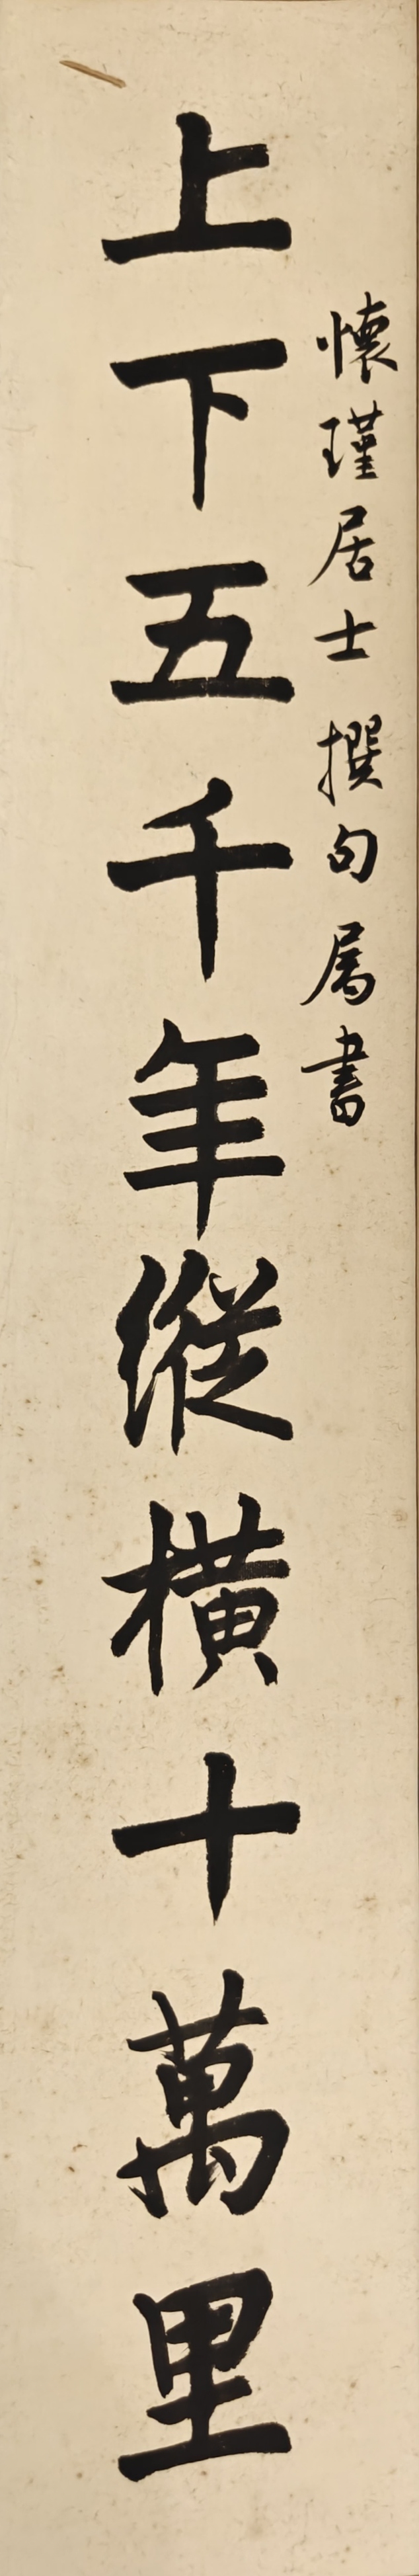 懷瑾居士撰句屬書
上下五千年縱橫十萬里